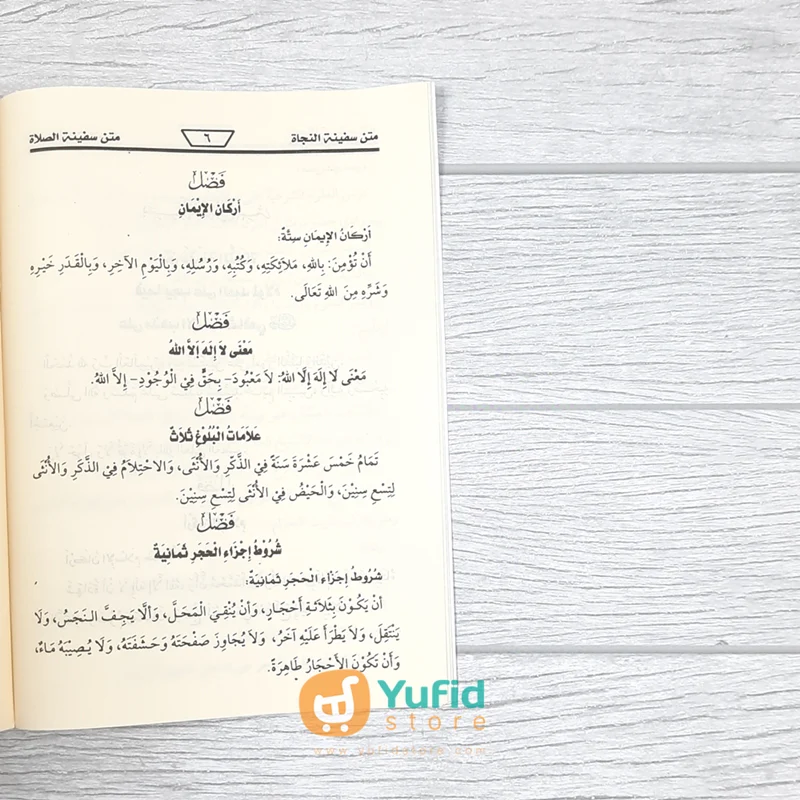 متن سفينة النجاة ٦ متن سفينة الصلاة
فَصْلٌ
أَرْكَان الإِيْمَانِ
أَرْكَانُ الإِيمَانِ سِتَّةٌ:
أَنْ تُؤْمِنَ: بِاللهِ، مَلَائِكَتِهِ، وَكُتُبِهِ، وَرُسُلِهِ، وَبِالْيَوْمِ الآخِرِ، وَبِالْقَدَرِ خَيْرِهِ
وَشَرِّهِ مِنَ اللهِ تَعَالَى.
فَصْلٌ
مَعْنَى لاَ إِلَهَ إِلاَّ اللهُ
مَعْنَى لَا إِلَهَ إِلَّا اللهُ: لاَ مَعْبُودَ- بِحَقٍّ فِي الْوُجُوْدِ- إِلاَّ اللهُ.
فَصْلٌ
عَلاَمَاتُ الْبُلُوْغِ ثَلاَثٌ
تَمَامُ خَمْسَ عَشْرَةَ سَنَةً فِيْ الذَّكَرِ وَالأُنْثَى، وَالاحْتِلاَمُ فِيْ الذَّكَرِ وَالأُنْثَى
لِتِسْعِ سِنِيْنَ، وَالْحَيْضُ فِيْ الأُنْثَى لِتِسْعِ سِنِيْنَ.
فَصْلٌ
شُرُوْطُ إِجْزَاءِ الْحَجَرِ ثَمَانِيَةٌ
شُرُوْطُ إِجْزَاءِ الْحَجَرِ ثَمَانِيَةٌ:
أَنْ يَكُوْنَ بِثَلاَثَةِ أَحْجَارٍ، وَأَنْ يُنْقِيَ الْمَحَلَّ، وَأَلَّا يَجِفَّ النَّجَسُ، وَلَا
يَنْتَقِلَ، وَلاَ يَطْرَأَ عَلَيْهِ آخَرُ، وَلاَ يُجَاوِزَ صَفْحَتَهُ وَحَشَفَتَهُ، وَلَا يُصِيْبَهُ مَاءٌ،
وَأَنْ تَكُوْنَ الأَحْجَارُ طَاهِرَةً.
Yufid
store